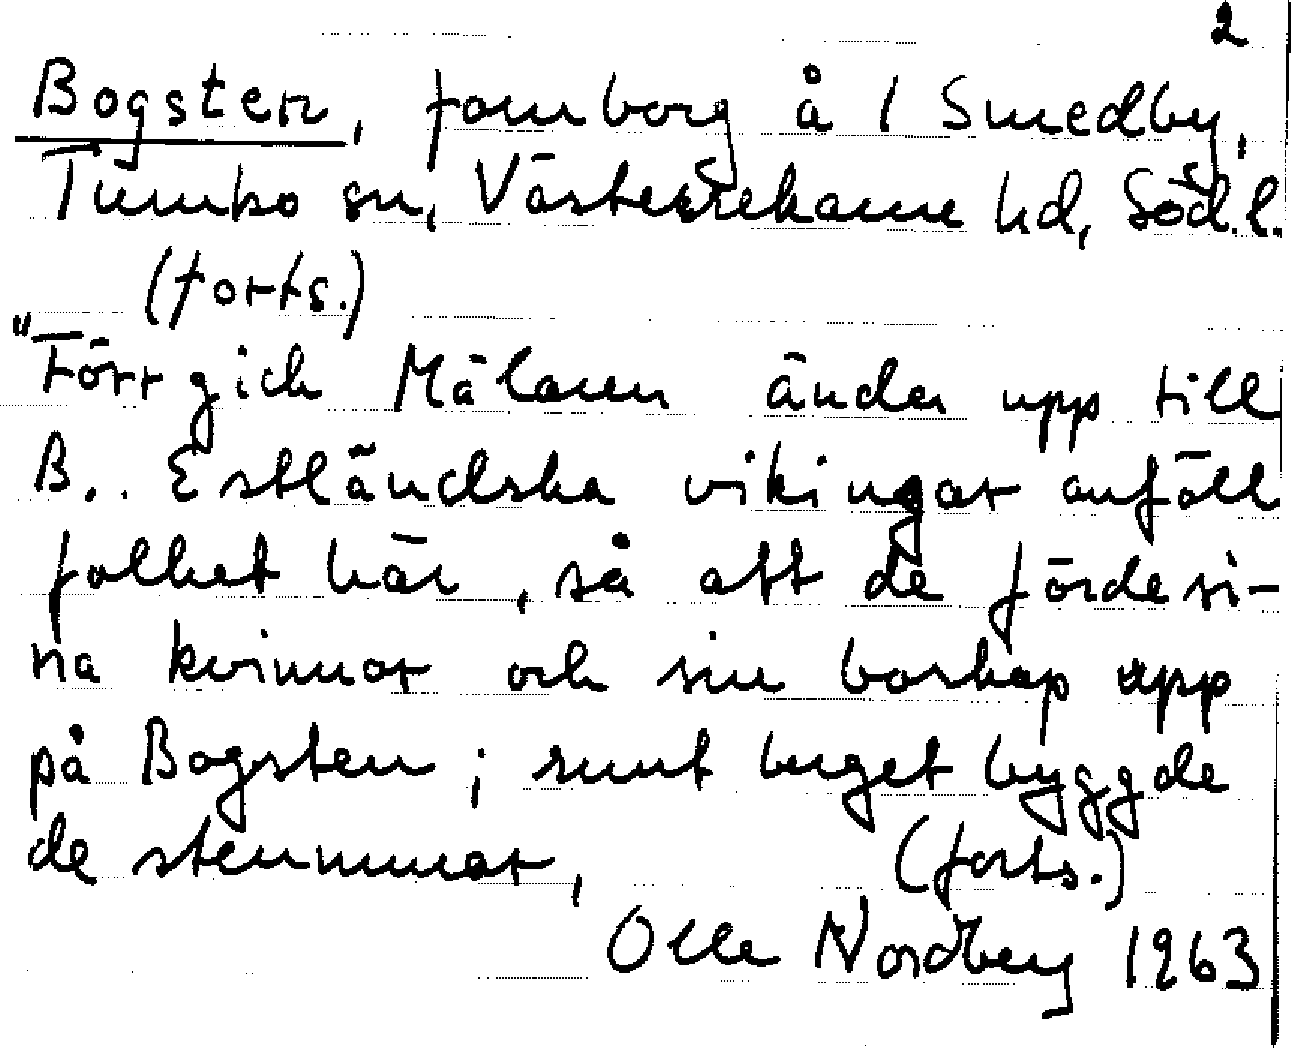 2
Bogsten, fornborg å 1 Smedby,
Tumbo sn, Västerrekarne hd, Söd.l.
(forts.)
"Förr gick Mälaren ända upp till
B.. Estländska vikingar anföll
folket här, så att de förde si-
na kvinnor och sin boskap upp
på Bogsten; runt berget byggde
de stenmurar, (forts.)
Olle Nordberg 1963